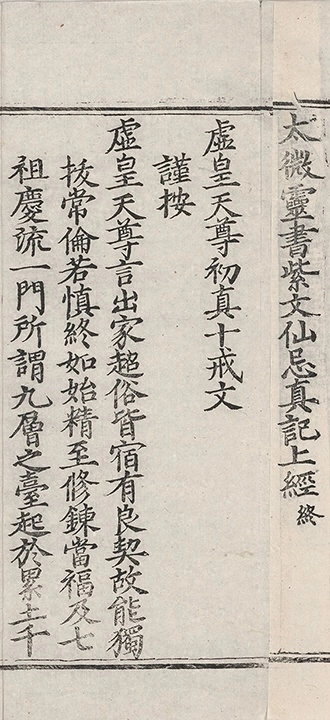 太微靈書紫文仙忌真記上經終
虛皇天尊初真十戒文
謹按
虛皇天尊言出家超俗皆宿有良契故能獨
拔常倫若慎終如始精至修鍊當福及七
祖慶流一門所謂九層之臺起於累土千